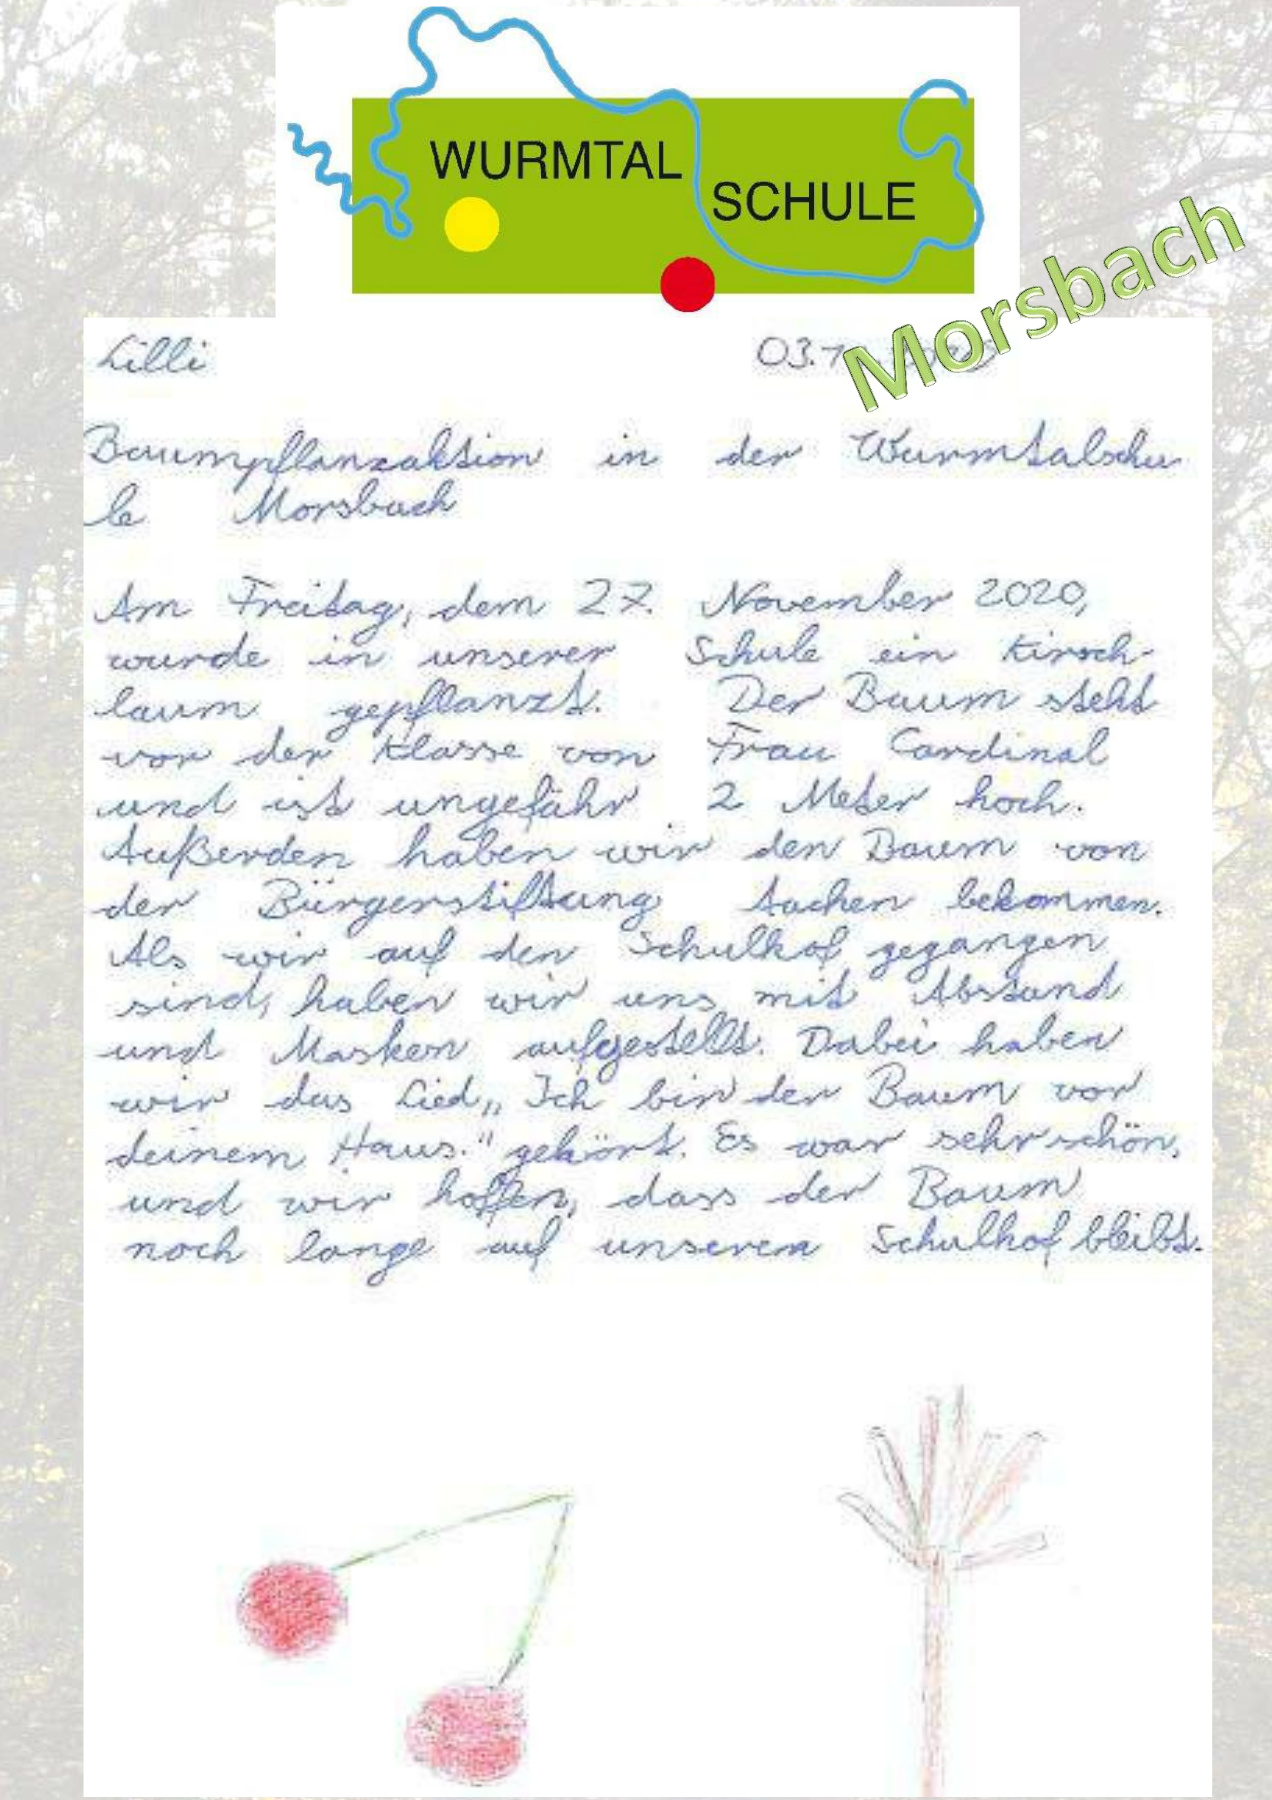 WURMTAL
SCHULE
Morsbach
Lilli
Baumpflanzaktion in der Wurmtalschu
le Morsbach
Am Freitag, dem 27. November 2020,
wurde in unserer Schule ein Kirsch-
baum gepflanzt. Der Baum steht
vor der Klasse von Frau Cardinal
und ist ungefähr 2 Meter hoch.
Außerden haben wir den Baum von
der Bürgerstiftung Aachen bekommen.
Als wir auf den Schulhof gegangen
sind, haben wir uns mit Abstand
und Masken aufgestellt. Dabei haben
wir das Lied „Ich bin der Baum vor
deinem Haus." gehört. Es war sehr schön,
und wir hoffen, dass der Baum
noch lange auf unserem Schulhof bleibt.